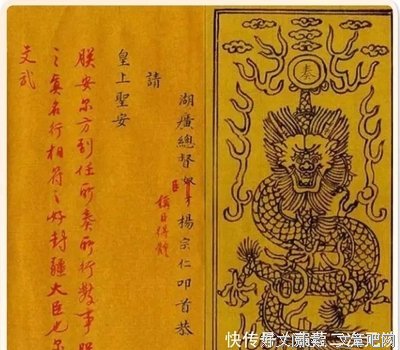 奏
湖廣總督奴才楊宗仁叩首恭
臣
稱臣得體
請
皇上聖安
朕安尔方到任所奏所行數事
之真名行相符之好封疆大臣也尔
文武
快传号